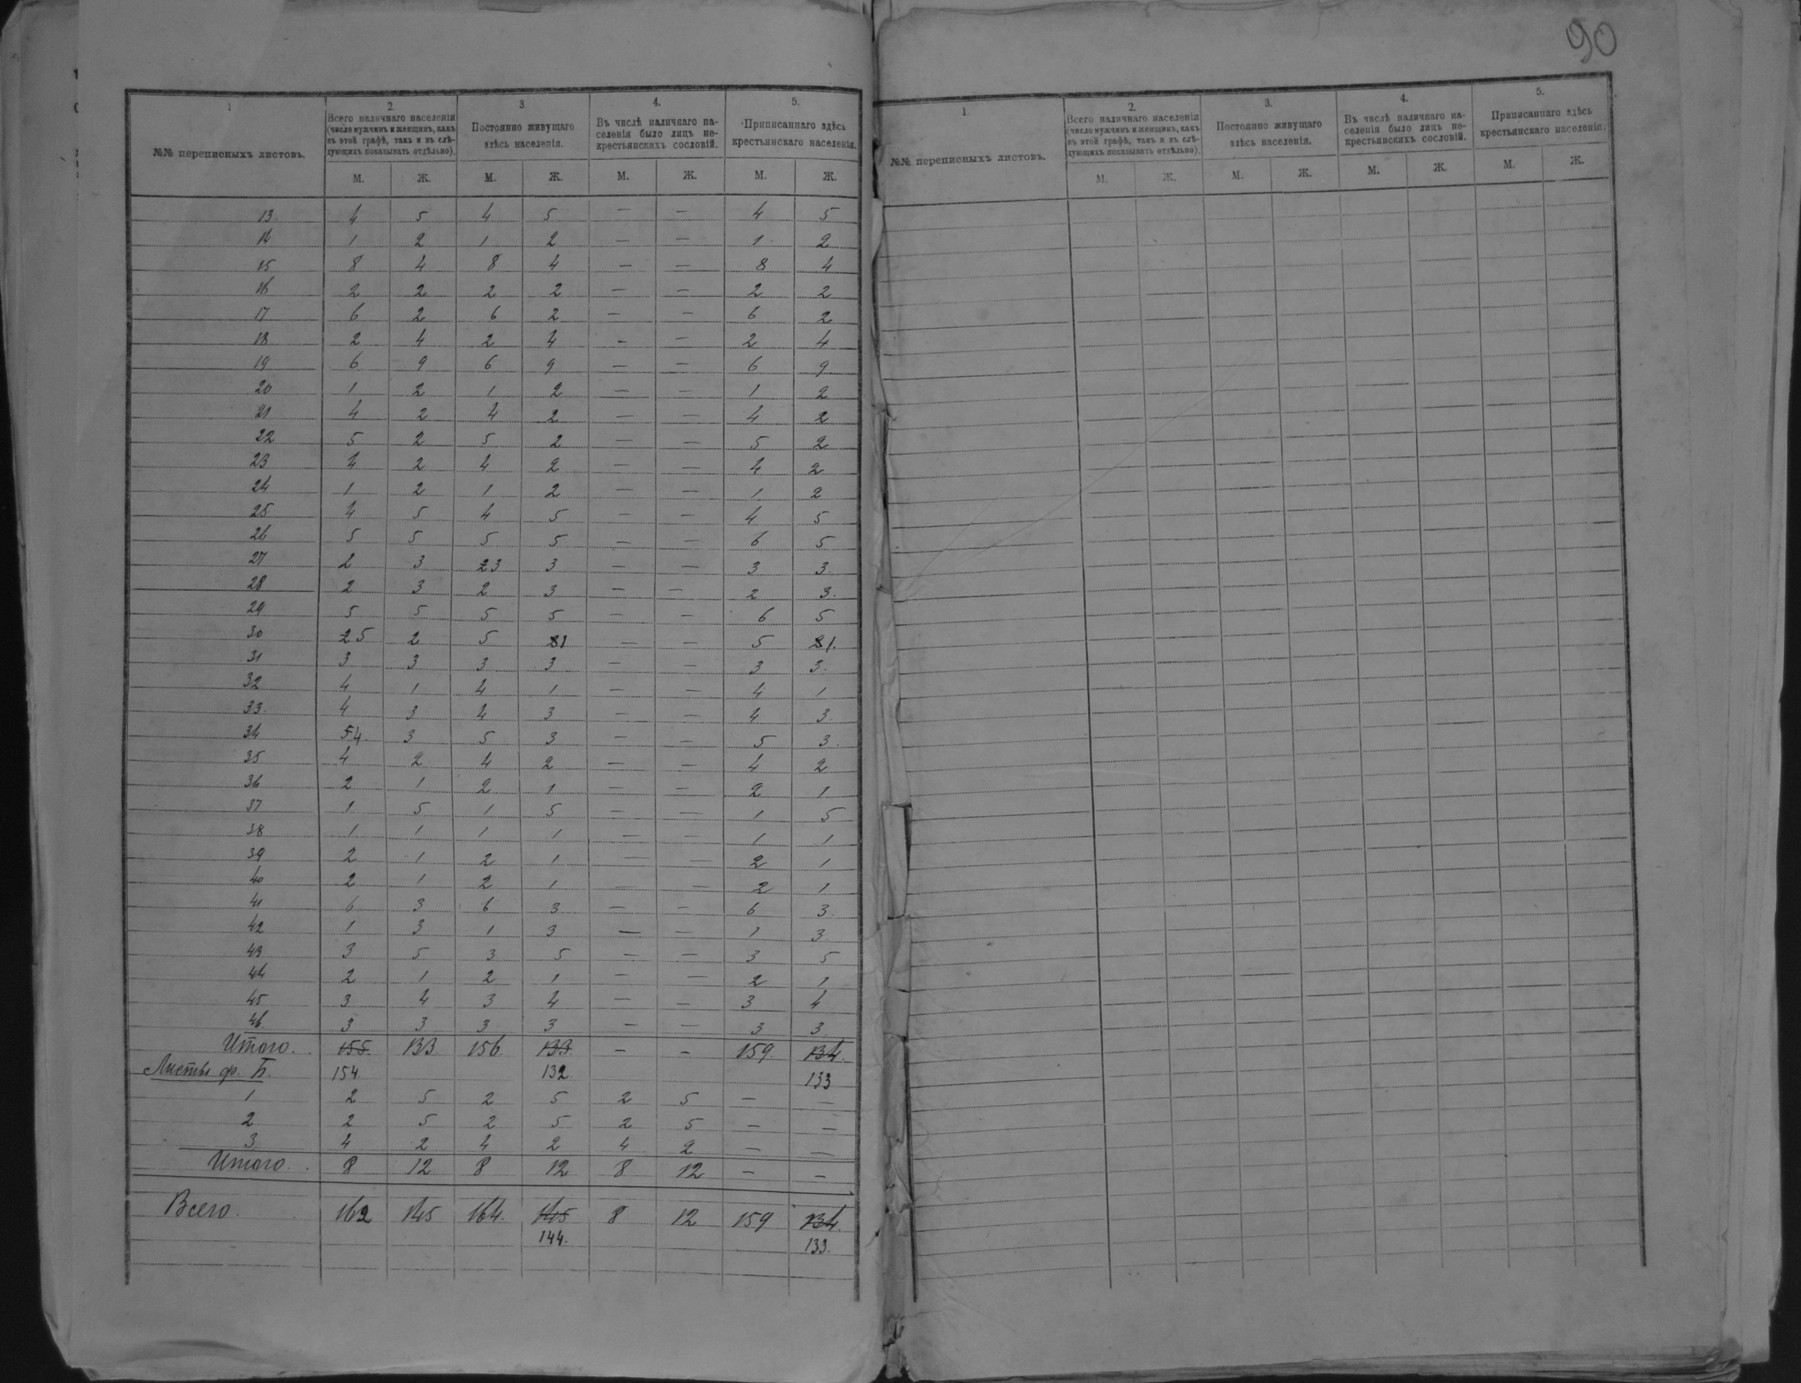 90
1
2.
3.
4.
5.
№№ переписныхъ листовъ.
Всего наличнаго населенія
(число мужчинъ и женщинъ, какъ
въ этой графѣ, такъ и въ слѣ-
дующихъ показывать отдѣльно).
Постоянно живущаго
здѣсь населенія.
Въ числѣ наличнаго на-
селенія было лицъ не-
крестьянскихъ сословій.
Приписаннаго здѣсь
крестьянскаго населенія.
М. Ж. М. Ж. М. Ж. М. Ж.
13 4 5 4 5 — — 4 5
14 1 2 1 2 — — 1 2
15 8 4 8 4 — — 8 4
16 2 2 2 2 — — 2 2
17 6 2 6 2 — — 6 2
18 2 4 2 4 — — 2 4
19 6 9 6 9 — — 6 9
20 1 2 1 2 — — 1 2
21 4 2 4 2 — — 4 2
22 5 2 5 2 — — 5 2
23 4 2 4 2 — — 4 2
24 1 2 1 2 — — 1 2
25 4 5 4 5 — — 4 5
26 5 5 5 5 — — 6 5
27 2 3 23 3 — — 3 3
28 2 3 2 3 — — 2 3
29 5 5 5 5 — — 6 5
30 25 2 5 21 — — 5 21
31 3 3 3 3 — — 3 3
32 4 1 4 1 — — 4 1
33 4 3 4 3 — — 4 3
34 54 3 5 3 — — 5 3
35 4 2 4 2 — — 4 2
36 2 1 2 1 — — 2 1
37 1 5 1 5 — — 1 5
38 1 1 1 1 — — 1 1
39 2 1 2 1 — — 2 1
40 2 1 2 1 — — 2 1
41 6 3 6 3 — — 6 3
42 1 3 1 3 — — 1 3
43 3 5 3 5 — — 3 5
44 2 1 2 1 — — 2 1
45 3 4 3 4 — — 3 4
46 3 3 3 3 — — 3 3
Итого. 155 133 156 133 — — 159 134
Листы ф. Б. 154 132 133
1 2 5 2 5 2 5 — —
2 2 5 2 5 2 5 — —
3 4 2 4 2 4 2 — —
Итого. 8 12 8 12 8 12 — —
Всего. 162 145 164 145 8 12 159 134
144. 133.
1.
2.
3.
4.
5.
№№ переписныхъ листовъ.
Всего наличнаго населенія
(число мужчинъ и женщинъ, какъ
въ этой графѣ, такъ и въ слѣ-
дующихъ показывать отдѣльно).
Постоянно живущаго
здѣсь населенія.
Въ числѣ наличнаго на-
селенія было лицъ не-
крестьянскихъ сословій.
Приписаннаго здѣсь
крестьянскаго населенія.
М. Ж. М. Ж. М. Ж. М. Ж.